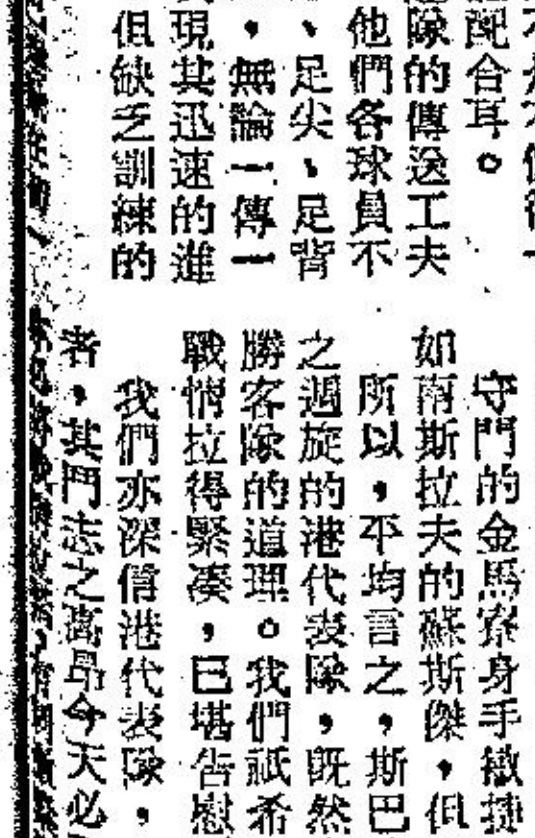 配合耳。
隊的傳送工夫
他們各球員不
、足尖、足背
，無論一傳一
現其迅速的進
但缺乏訓練的
守門的金馬寮身手敏捷
如南斯拉夫的蘇斯傑，但
所以，平均言之，斯巴
之週旋的港代表隊，既然
勝客隊的道理。我們祇希
戰情拉得緊凑，已堪告慰
我們亦深信港代表隊，
者，其鬥志之高昂今天必